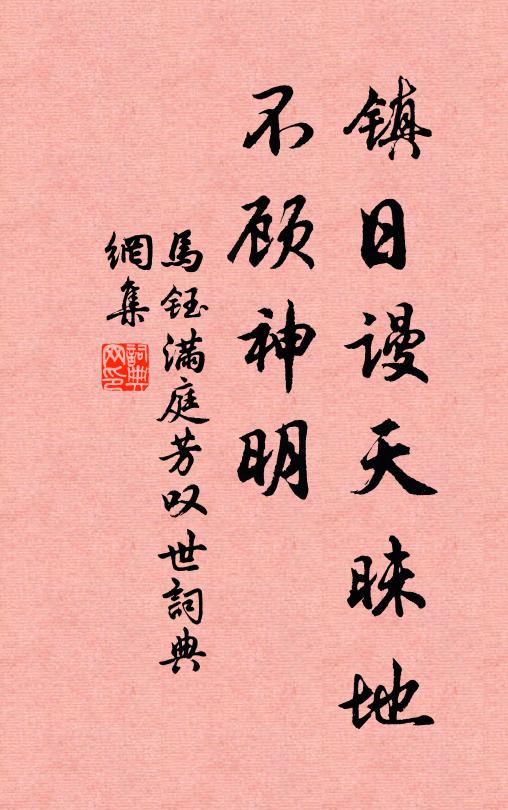 镇日谩天昧地
不顾神明
馬钰满庭芳叹世詞典
網集
詞典
网印